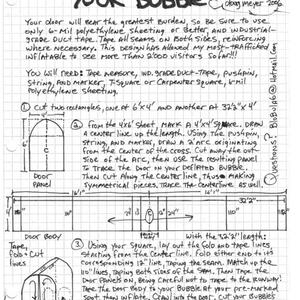 YOUR BUBBLE
© doug meyer 2006
Your door will bear the greatest burden, so be sure to use
only 6-mil polyethylene sheeting or better and industrial-
grade duct tape. Tape all seams on both sides, reinforcing
where necessary. This design has allowed my most-trafficked
inflatable to see more than 2000 visitors so far!!!
You will need: tape measure, ind. grade duct-tape, pushpin,
string, and marker, T-square or carpenter square, 6-mil
polyethylene sheeting.
① Cut two rectangles, one at 6'x4' and another at 32'2"x4'
② From the 4'x6' sheet, mark a 4'x4' square. Draw
a center line up the length. Using the pushpin,
string, and marker, draw a 2' arc originating
from the center of the cross. Cut away the out-
side of the arc, then use the resulting panel
to trace the door in your deflated bubble.
Then cut along the center line thus making
symmetrical pieces. Trace the centerline as well.
Door
Panel
Questions? BluBulp6@hotmail.com
16'1"
16'1"
32'2"
Door Body
Tape,
fold + cut
lines
With the 32'2" length:
③ Using your square, lay out the fold and tape lines,
starting from the center. Fold either end to its
corresponding 12" line, taping the seam. Match up the
110" lines, taping both sides of the seam. Then tape the
door panels on, being careful not to tape to the runway.
Tape the door body to your bubble at your pre-marked
spot then inflate. Crawl into the door, cut your bubble's